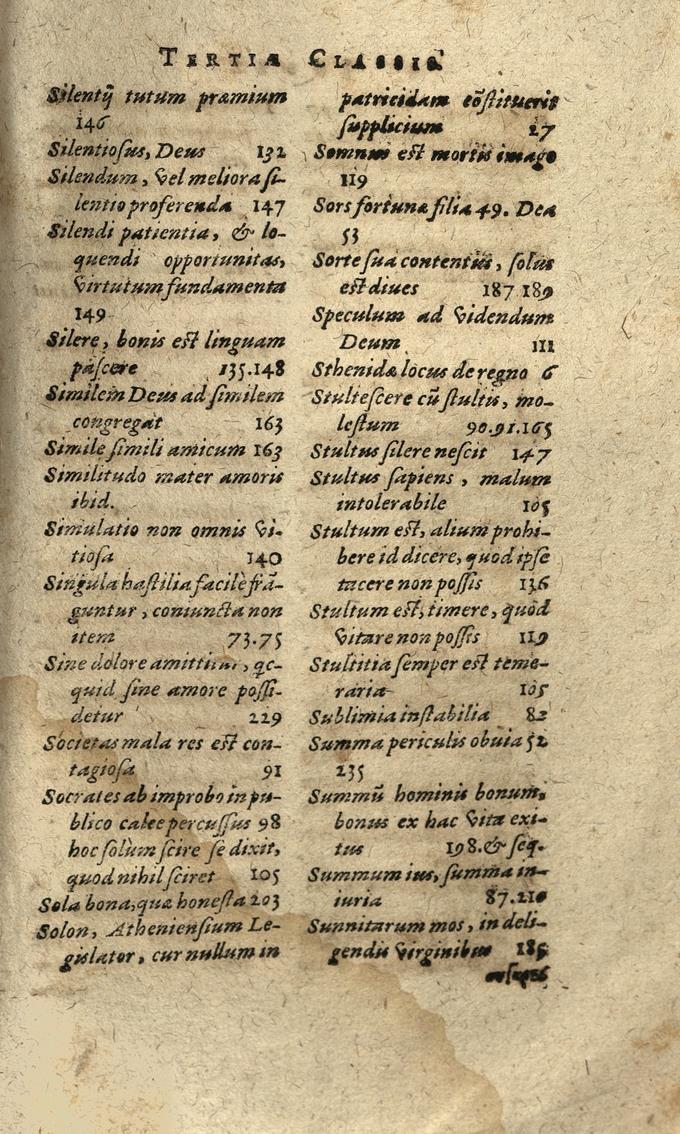 TERTIÆ CLASSIS
Silentij tutum præmium
146
Silentiosus, Deus 132
Silendum, vel meliora si-
lentio proferenda 147
Silendi patientia, & lo-
quendi opportunitas,
virtutum fundamenta
149
Silere, bonis est linguam
pascere 135.148
Similem Deus ad similem
congregat 163
Simile simili amicum 163
Similitudo mater amoris
ibid.
Simulatio non omnis vi-
tiosa 140
Singula hastilia facilè frā-
guntur, coniuncta non
item 73.75
Sine dolore amittitur, qc-
quid sine amore possi-
detur 229
Societas mala res est con-
tagiosa 91
Socrates ab improbo in pu-
blico calce percussus 98
hoc solùm scire se dixit,
quod nihil sciret 105
Sola bona, quæ honesta 203
Solon, Atheniensium Le-
gislator, cur nullum in
patricidam cōstituerit
supplicium 27
Somnus est mortis imago
119
Sors fortunæ filia 49. Dea
53
Sorte sua contentus, solus
est diues 187 189
Speculum ad videndum
Deum 111
Sthenidæ locus de regno 6
Stultescere cū stultis, mo-
lestum 90.91.165
Stultus silere nescit 147
Stultus sapiens, malum
intolerabile 105
Stultum est, alium prohi-
bere id dicere, quod ipse
tacere non possis 136
Stultum est, timere, quod
vitare non possis 119
Stultitia semper est teme-
raria 105
Sublimia instabilia 82
Summa periculis obuia 52
235
Summū hominis bonum,
bonus ex hac vita exi-
tus 198.& seq.
Summum ius, summa in-
iuria 87.210
Sunnitarum mos, in deli-
gendis virginibus 185